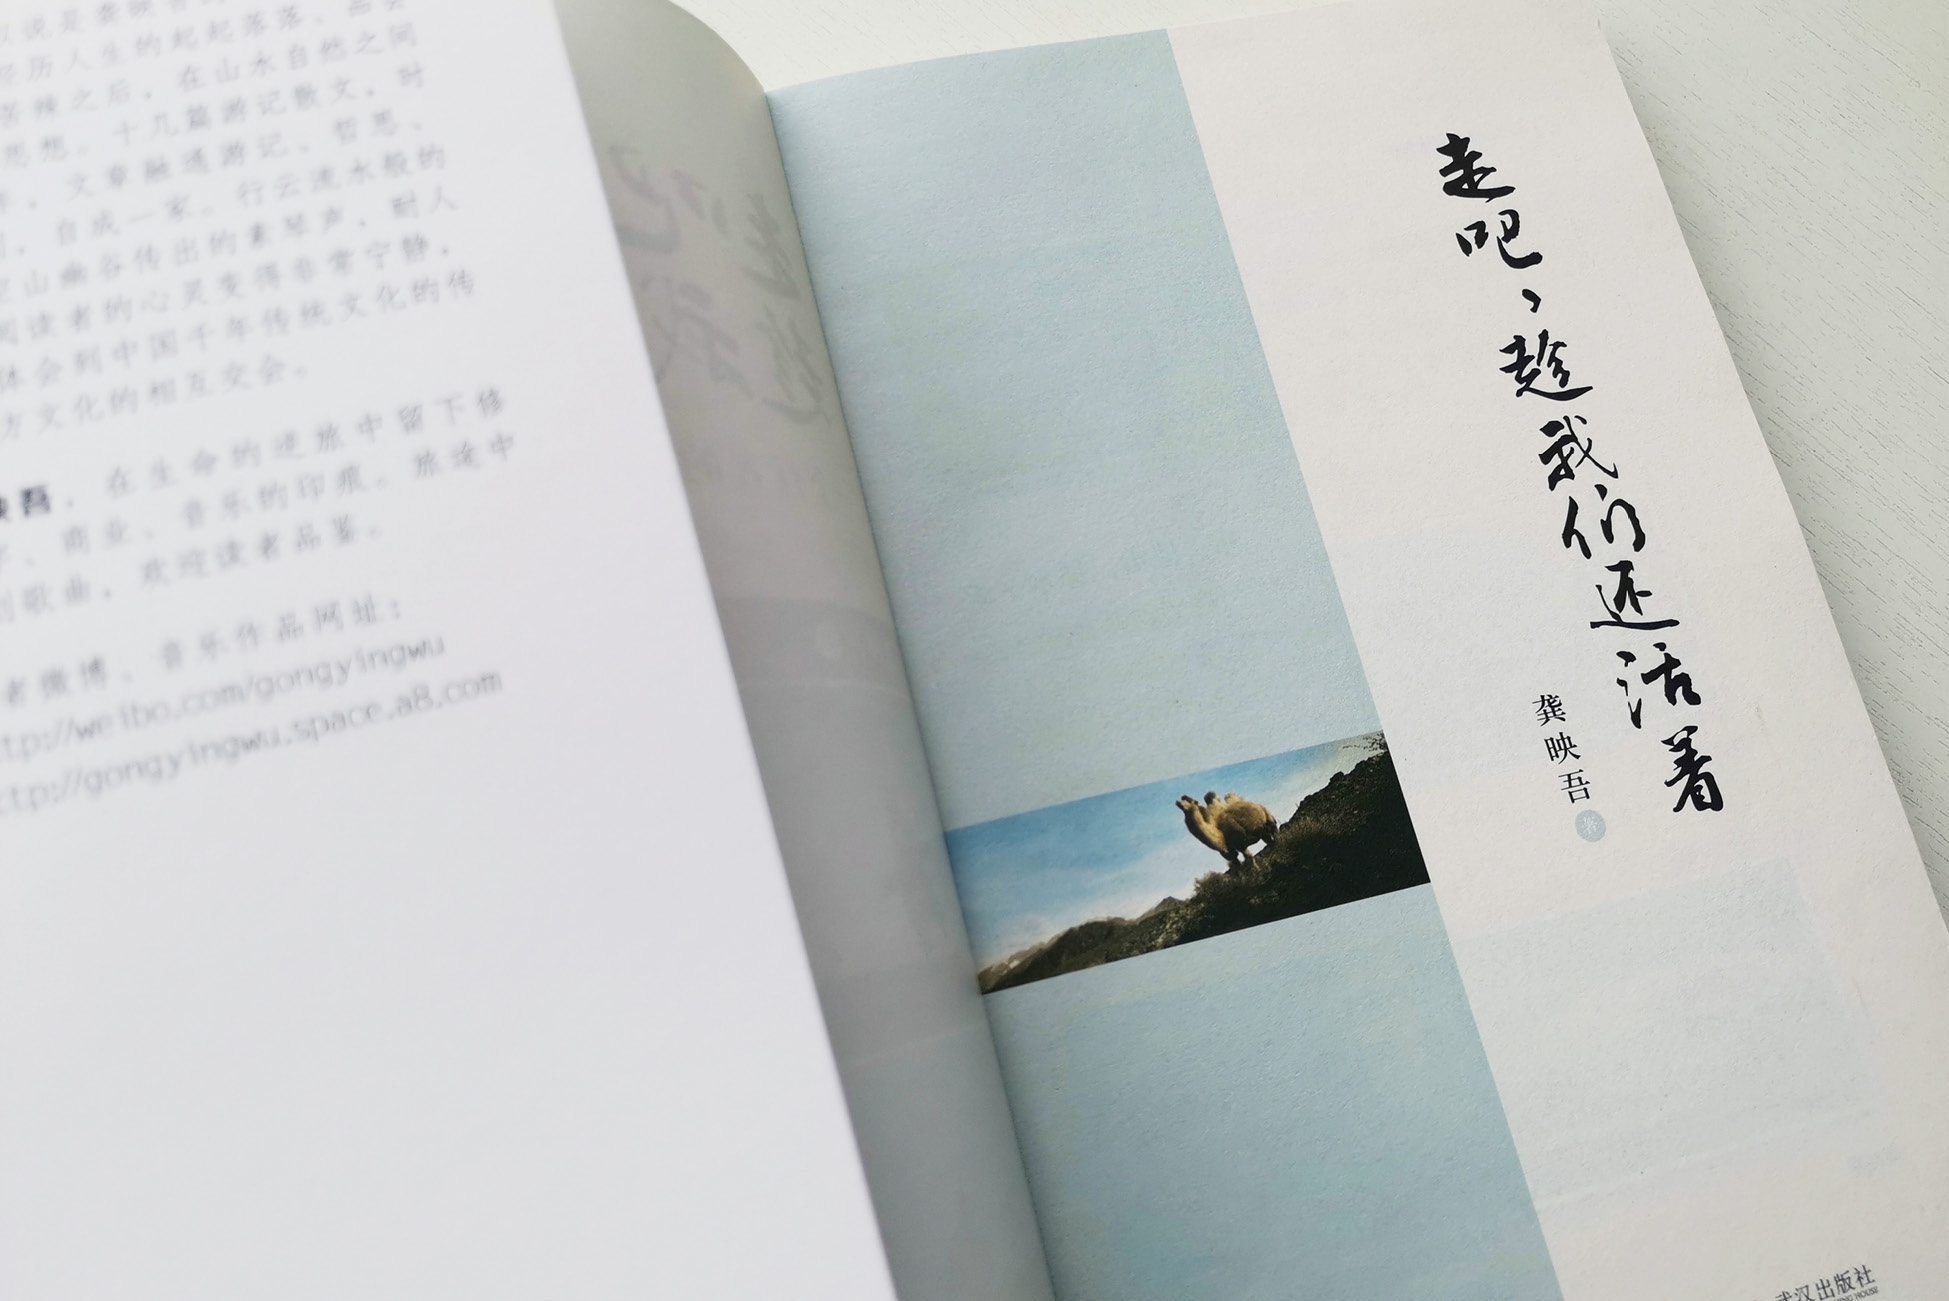 说是龚映吾的
历人生的起起落落、品尝
辣之后，在山水自然之间
思想。十几篇游记散文，时
文章融通游记、哲思、
自成一家。行云流水般的
山幽谷传出的素琴声，耐人
阅读者的心灵变得非常宁静，
体会到中国千年传统文化的传
方文化的相互交会。
映吾，在生命的逆旅中留下修
商业、音乐的印痕。旅途中
创歌曲，欢迎读者品鉴。
者微博、音乐作品网址：
tp://weibo.com/gongyingwu
tp://gongyingwu.space.a8.com
走吧，趁我们还活着
龚映吾 著
武汉出版社